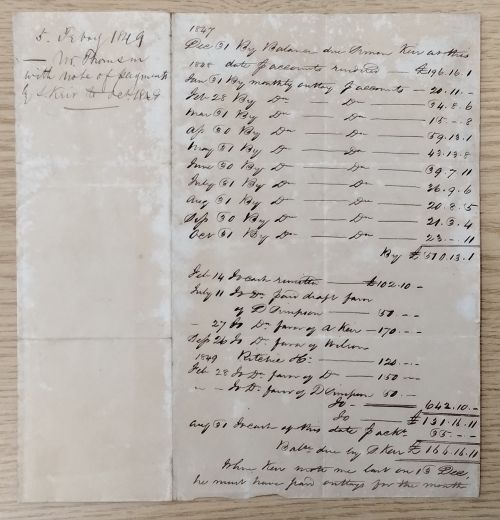 5. Febry 1849
— Wm Thomson
with note of payments
by S Keir to Oct. 1848
1847
Dec 31 By Balance due Simon Keir at this
1848 date p accounts rendered — £196.16.1
Jan 31 By monthly outlay p accounts — 20.11.-
Feb 28 By Do — Do — 34.8.6
Mar 31 By Do — Do — 15.-.8
Ap 30 By Do — Do — 59.13.1
May 31 By Do — Do — 43.13.8
June 30 By Do — Do — 39.7.11
July 31 By Do — Do — 36.9.6
Aug 31 By Do — Do — 20.8.5
Sep 30 By Do — Do — 21.3.4
Oct 31 By Do — Do — 23.-.11
By £510.13.1
Feb 14 To cash remitted — £102.10 -
July 11 To Do. paid draft favor
of D Simpson — 50 - -
- 27 To Do favor of A Keir — 170 - -
Sep 26 To Do favor of Wilson
1849 Ritchie &Co — 120 - -
Feb 28 To Do favor of Do — 150 - -
" - To Do favor of D Simpson 50. - -
To — 642.10. -
To — £131.16.11
Aug 31 To cash of this date p acct. 35. - -
Balce due by S Keir £166.16.11
When Keir wrote me last on 13 Dec,
he must have paid outlays for the month